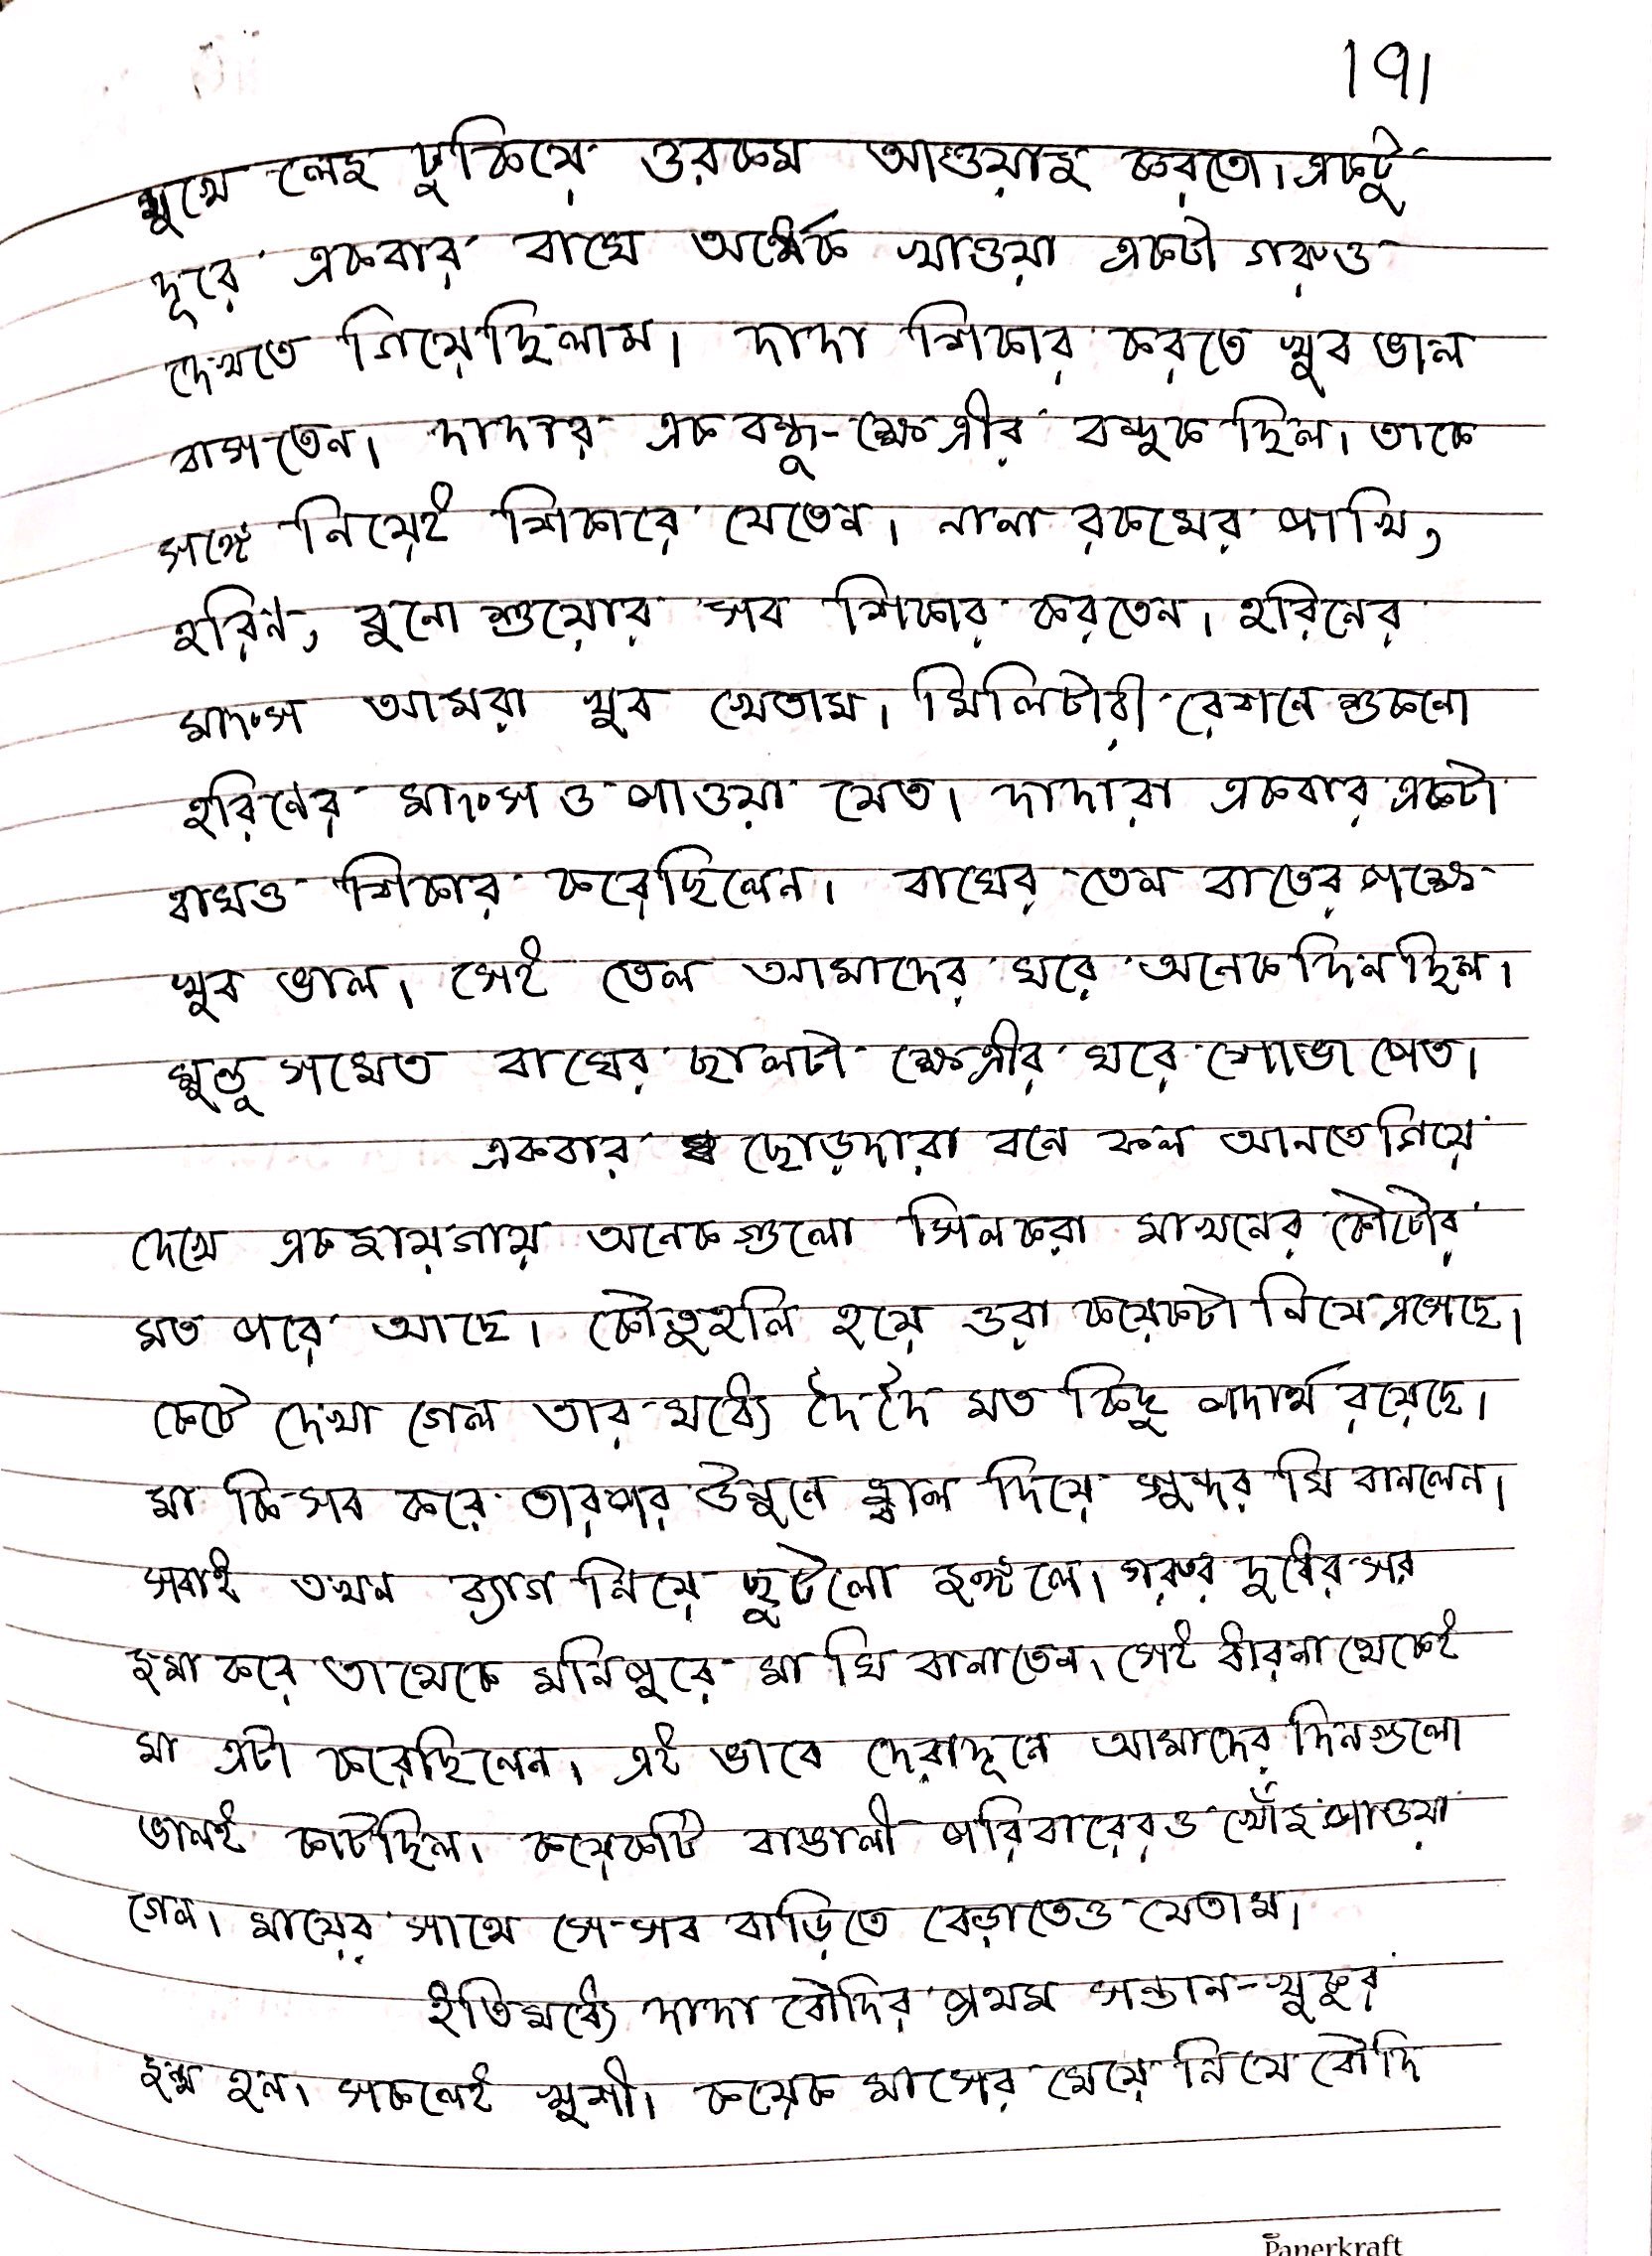 ।৭।
মুখে লেই ঢুকিয়ে ওরকম আওয়াজ করতো। একটু
দূরে একবার বাঘে অর্ধেক খাওয়া একটা গরুও
দেখতে গিয়েছিলাম। দাদা শিকার করতে খুব ভাল
বাসতেন। দাদার এক বন্ধু-ক্ষেত্রীর বন্দুক ছিল। তাকে
সঙ্গে নিয়েই শিকারে যেতেন। নানা রকমের পাখি,
হরিন, বুনো শুয়োর সব শিকার করতেন। হরিনের
মাংস আমরা খুব খেতাম। মিলিটারী রেশনে শুকনো
হরিনের মাংসও পাওয়া যেত। দাদারা একবার একটা
বাঘও শিকার করেছিলেন। বাঘের তেল বাতের পক্ষে
খুব ভাল। সেই তেল আমাদের ঘরে অনেকদিন ছিল।
মুন্ডু সমেত বাঘের ছালটা ক্ষেত্রীর ঘরে শোভা পেত।
একবার ছোড়দারা বনে ফল আনতে গিয়ে
দেখে একজায়গায় অনেকগুলো সিলকরা মাখনের কৌটোর
মত পরে আছে। কৌতুহলি হয়ে ওরা কয়েকটা নিয়ে এসেছে।
কেটে দেখা গেল তার মধ্যে দৈ দৈ মত কিছু পদার্থ রয়েছে।
মা কি সব করে তারপর উনুনে জ্বাল দিয়ে সুন্দর ঘি বানলেন।
সবাই তখন ব্যাগ নিয়ে ছুটলো জঙ্গলে। গরুর দুধের সর
জমা করে তা থেকে মনিপুরে মা ঘি বানাতেন। সেই ধারনা থেকেই
মা এটা করেছিলেন। এই ভাবে দেরাদূনে আমাদের দিনগুলো
ভালই কাটছিল। কয়েকটি বাঙালী পরিবারেরও খোঁজ পাওয়া
গেল। মায়ের সাথে সে-সব বাড়িতে বেড়াতেও যেতাম।
ইতিমধ্যে দাদা বৌদির প্রথম সন্তান-খুকুর
জন্ম হল। সকলেই খুশী। কয়েক মাসের মেয়ে নিয়ে বৌদি
Paperkraft